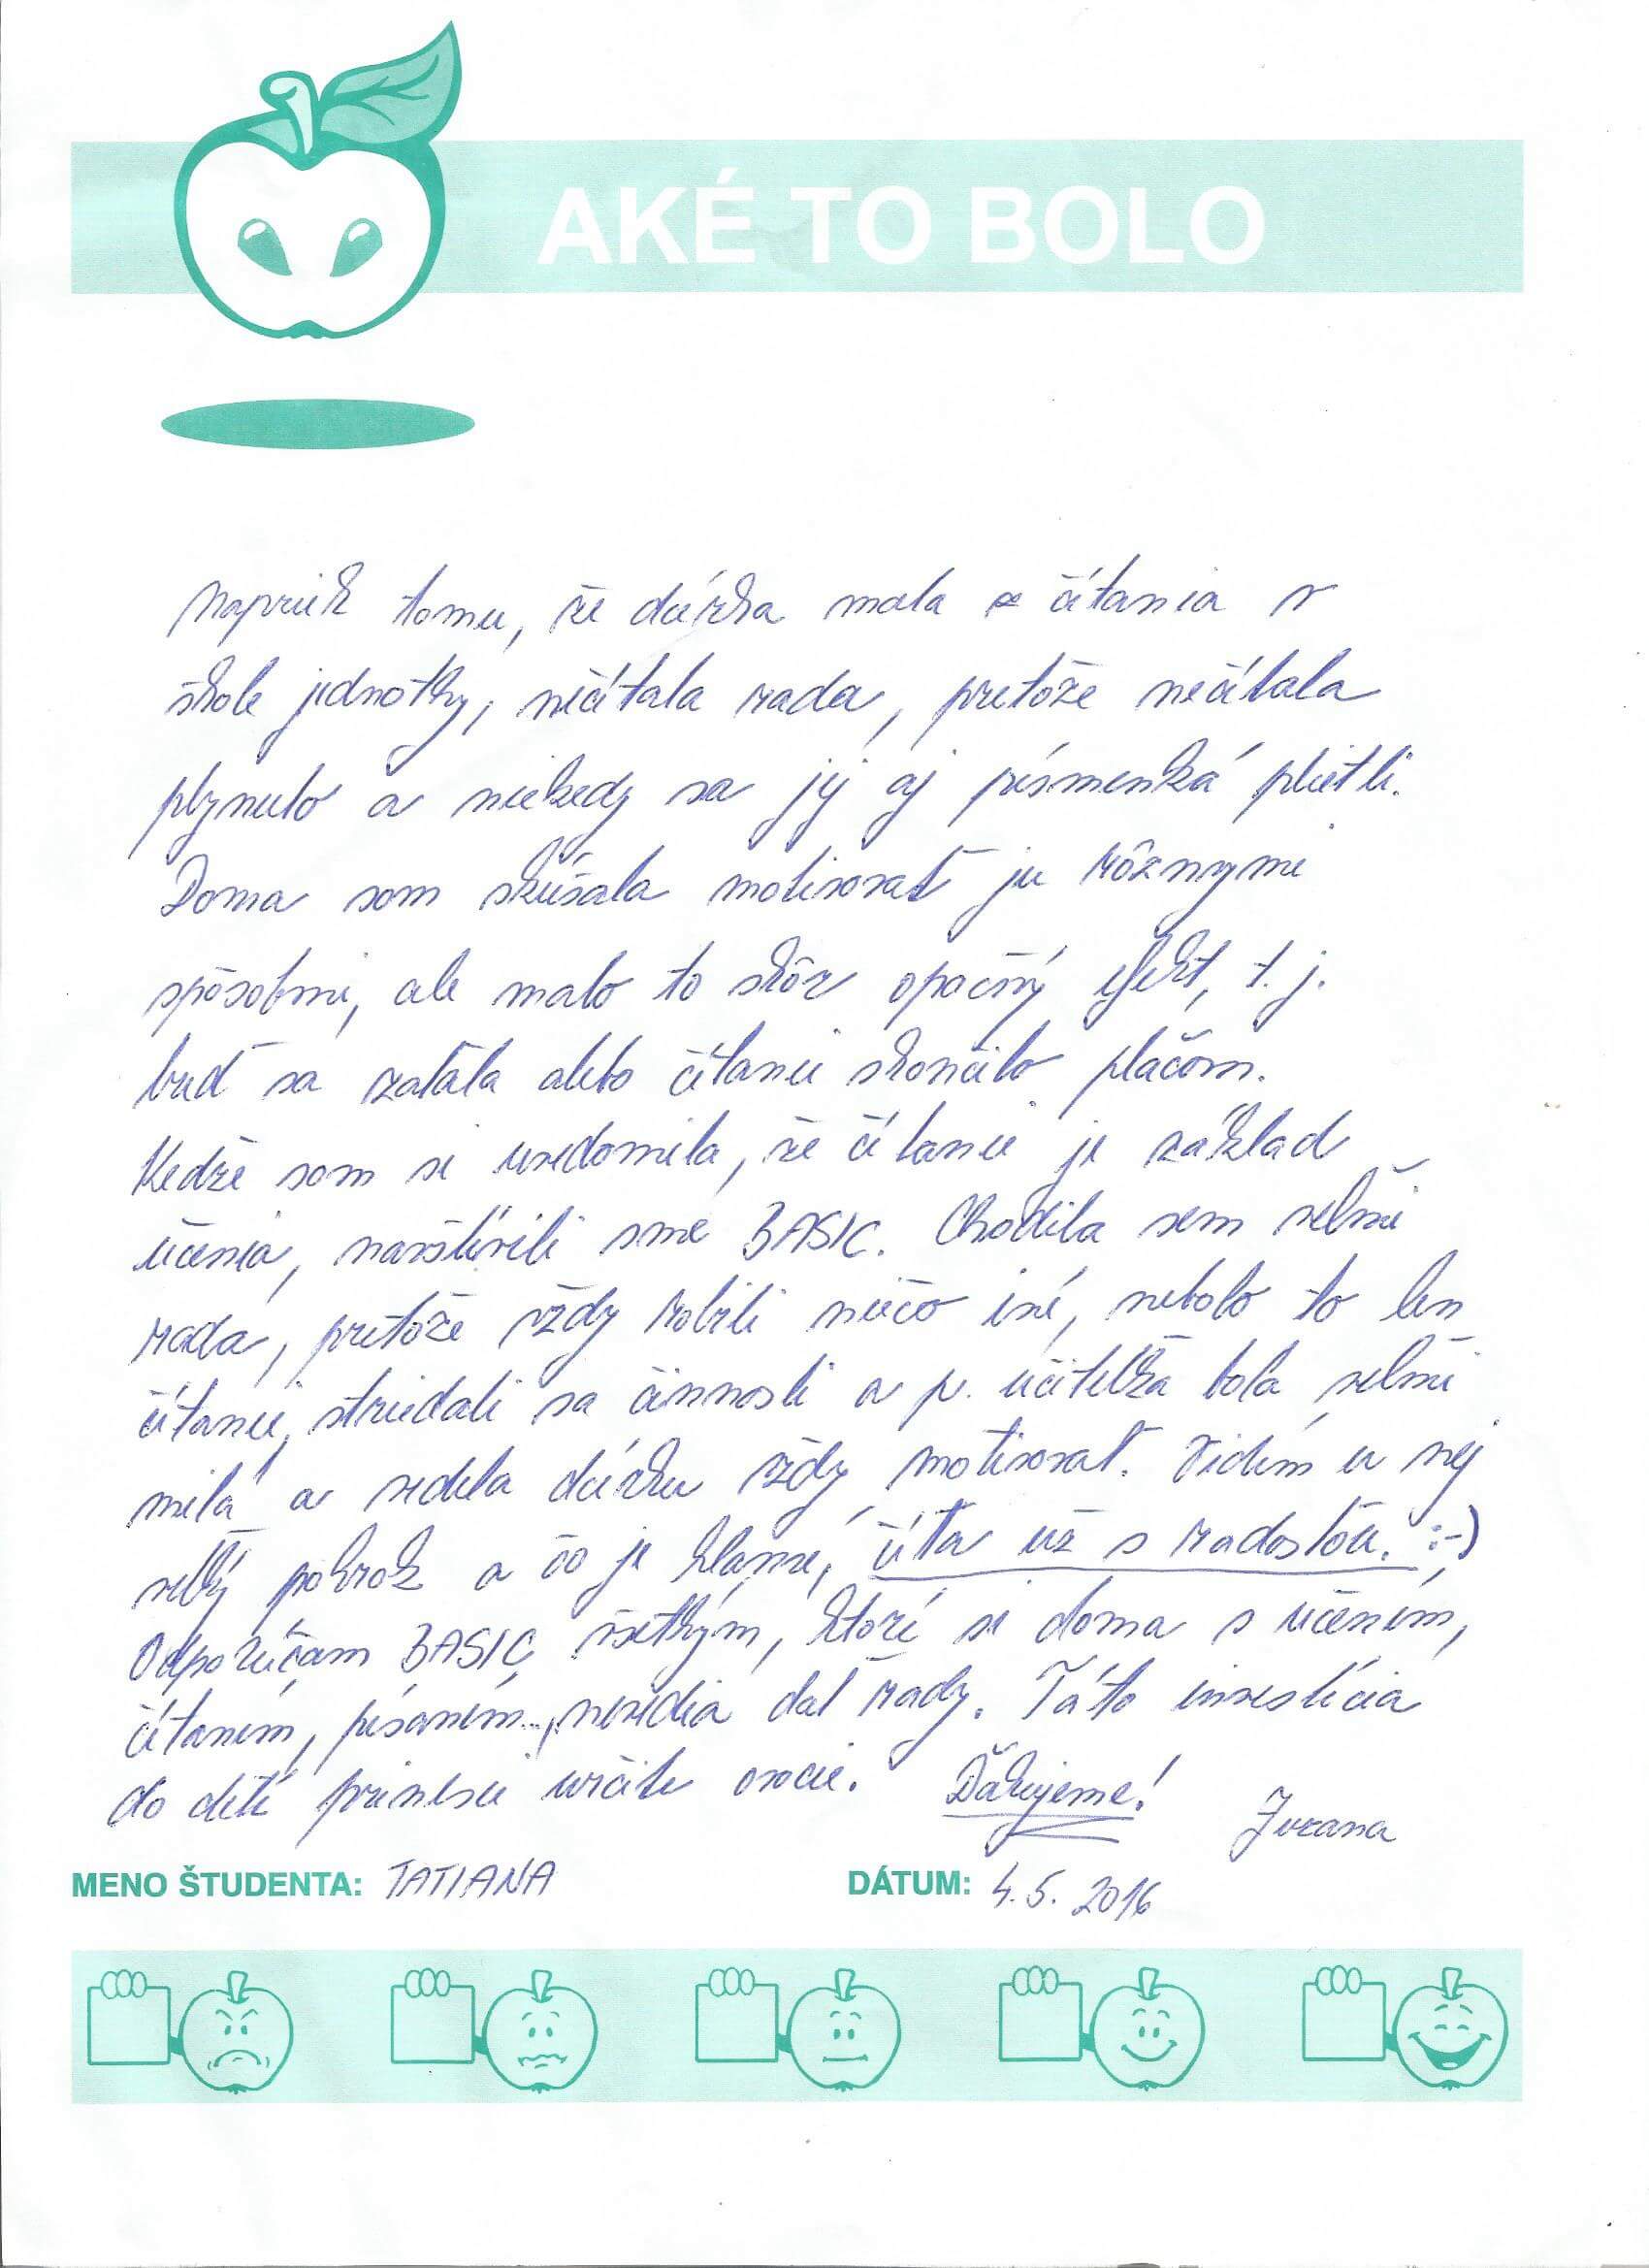 AKÉ TO BOLO
Napriek tomu, že dcérka mala z čítania v
škole jednotky, nečítala rada, pretože nečítala
plynulo a niekedy sa jej aj písmenká plietli.
Doma som skúšala motivovať ju rôznymi
spôsobmi, ale malo to skôr opačný efekt, t. j.
buď sa zaťala alebo čítanie skončilo plačom.
Kedže som si uvedomila, že čítanie je základ
učenia, navštívili sme BASIC. Chodila sem veľmi
rada, pretože vždy robili niečo iné, nebolo to len
čítanie, striedali sa činnosti a p. učiteľka bola veľmi
milá a vedela dcérku vždy motivovať. Vidím u nej
veľký pokrok a čo je hlavné, číta už s radosťou. :-)
Odporúčam BASIC všetkým, ktorí si doma s učením,
čítaním, písaním..., nevedia dať rady. Táto investícia
do detí prinesie určite ovocie. Ďakujeme!
Zuzana
MENO ŠTUDENTA: TATIANA DÁTUM: 4. 5. 2016